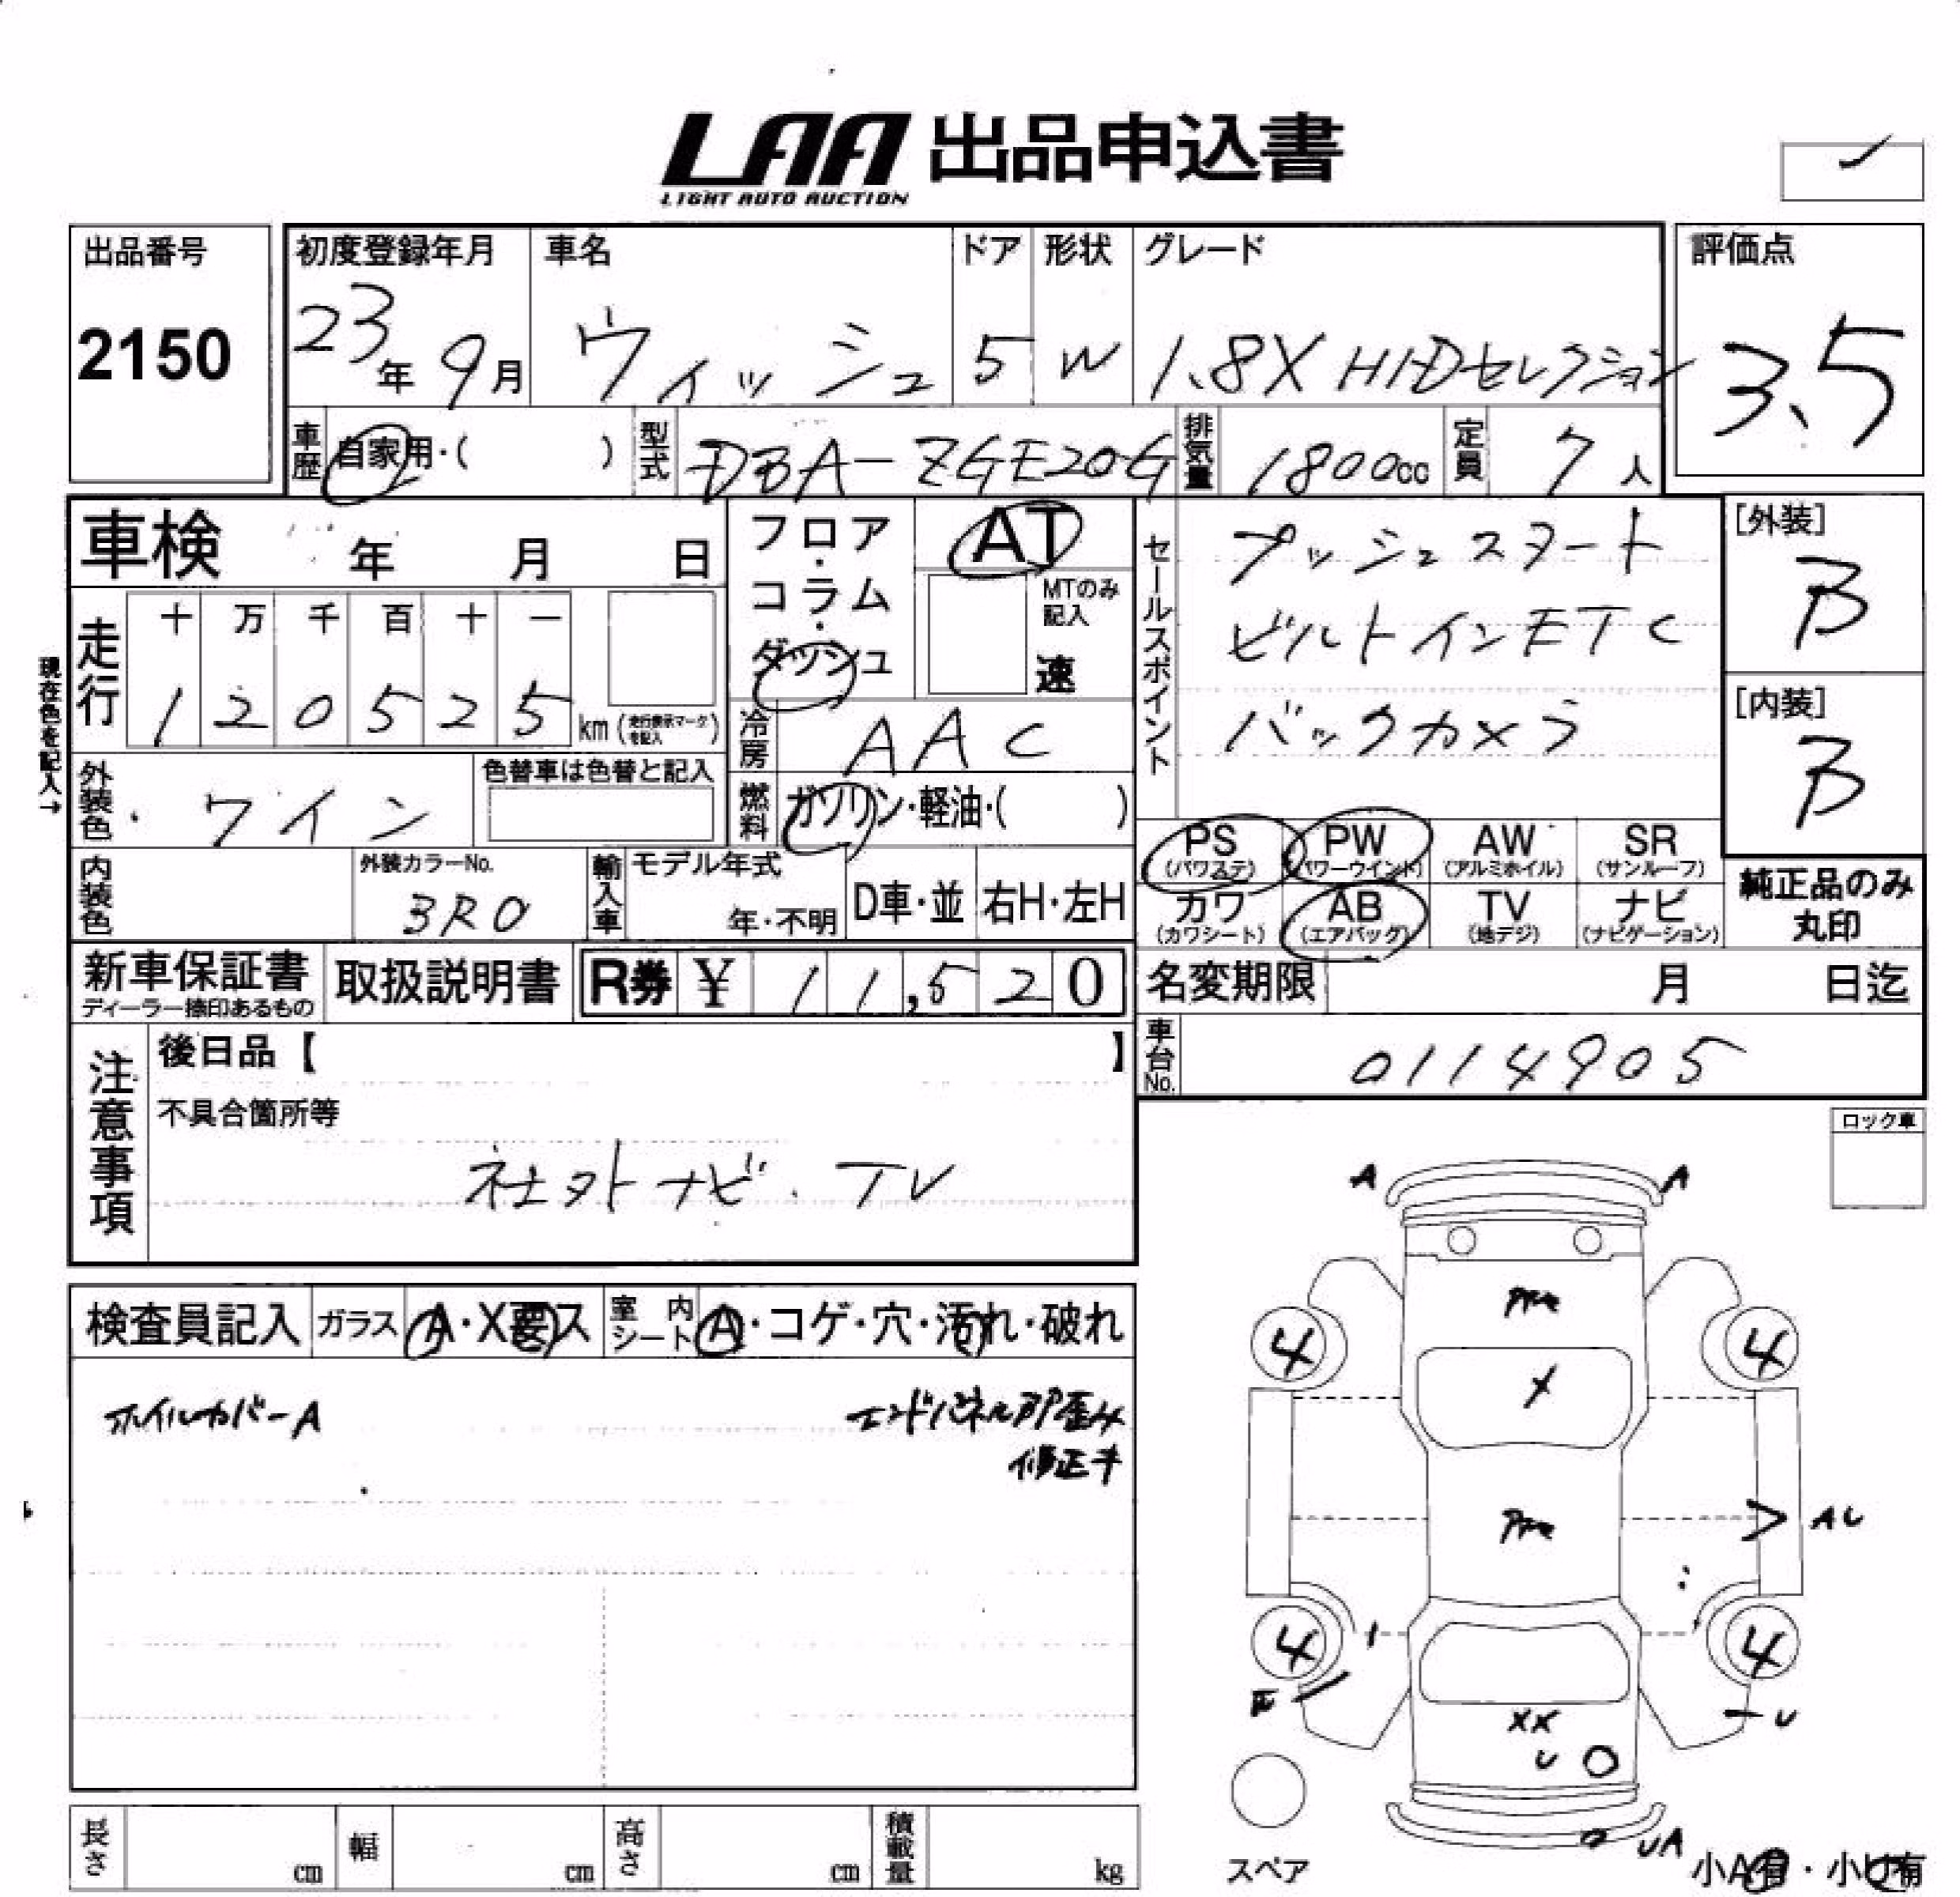 LAA 出品申込書
LIGHT AUTO AUCTION
出品番号
2150
初度登録年月
23年9月
車名
ウィッシュ
ドア
5
形状
W
グレード
1.8X HIDセレクション
評価点
3.5
車歴
自家用・( )
型式
DBA-ZGE20G
排気量
1800cc
定員
7人
車検 年 月 日
フロア・コラム・ダッシュ
AT
MTのみ記入
速
セールスポイント
プッシュスタート
ビルトインETC
バックカメラ
[外装]
B
[内装]
B
現在色を記入→
走行
十 万 千 百 十 一
1 2 0 5 2 5 km (走行表示マークを記入)
冷房
AAC
外装色
ワイン
色替車は色替と記入
燃料
ガソリン・軽油・( )
PS (パワステ)
PW (パワーウインド)
AW (アルミホイル)
SR (サンルーフ)
カワ (カワシート)
AB (エアバッグ)
TV (地デジ)
ナビ (ナビゲーション)
純正品のみ丸印
内装色
外装カラーNo.
3R0
輸入車
モデル年式
年・不明
D車・並
右H・左H
新車保証書
ディーラー捺印あるもの
取扱説明書
R券 ¥ 11,520
名変期限 月 日迄
車台No.
0114905
注意事項
後日品【 】
不具合箇所等
社外ナビ. TV
ロック車
検査員記入
ガラス
A・X要ス
室内シート
A・コゲ・穴・汚れ・破れ
ホイルカバーA
エンドパネル部歪み
修正キ
A A
4 4
X
AU
4 4
XX
U
U
UA
スペア
小A有・小U有
長さ cm
幅 cm
高さ cm
積載量 kg